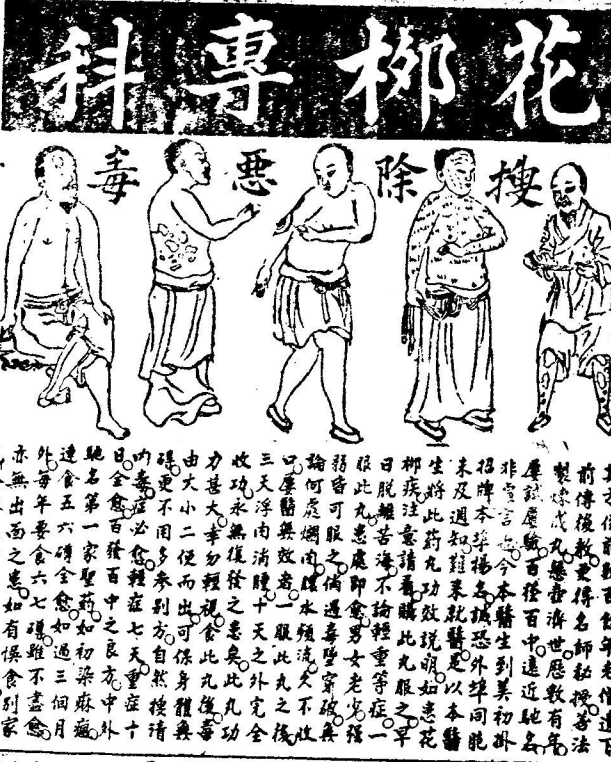 花柳專科
搜除惡毒
前傳後教更得名師勸授善法
製煉成丸懸壺濟世歷數有年
屢試屢驗百發百中遠近馳名
非虛言也今本醫生到美初掛
招牌本埠揚名誠恐外埠同胞
未及週知難來就醫是以本醫
生將此葯丸功效説明如患花
柳疾注意請看購此丸服之早
日脫離苦海不論輕重等症一
服此丸患處即愈男女老少強
弱皆可服之倘遇毒墜穿破無
論何處爛肉膿水頻流久不收
口屢醫無效者一服此丸之後
三天浮肉消腫十天之外完全
收功永無復發之患矣此丸功
力甚大幸勿輕視食此丸後毒
由大小二便而出可保身體無
碍更不用多參別方自然搜清
內毒症必愈輕症七天重症十
日全愈百發百中之良方中外
馳名第一家聖葯如初染麻瘋
連食五六罇全愈如過三個月
外每年要食六七罇雖不盡愈
亦無出面之患如有悞食別家